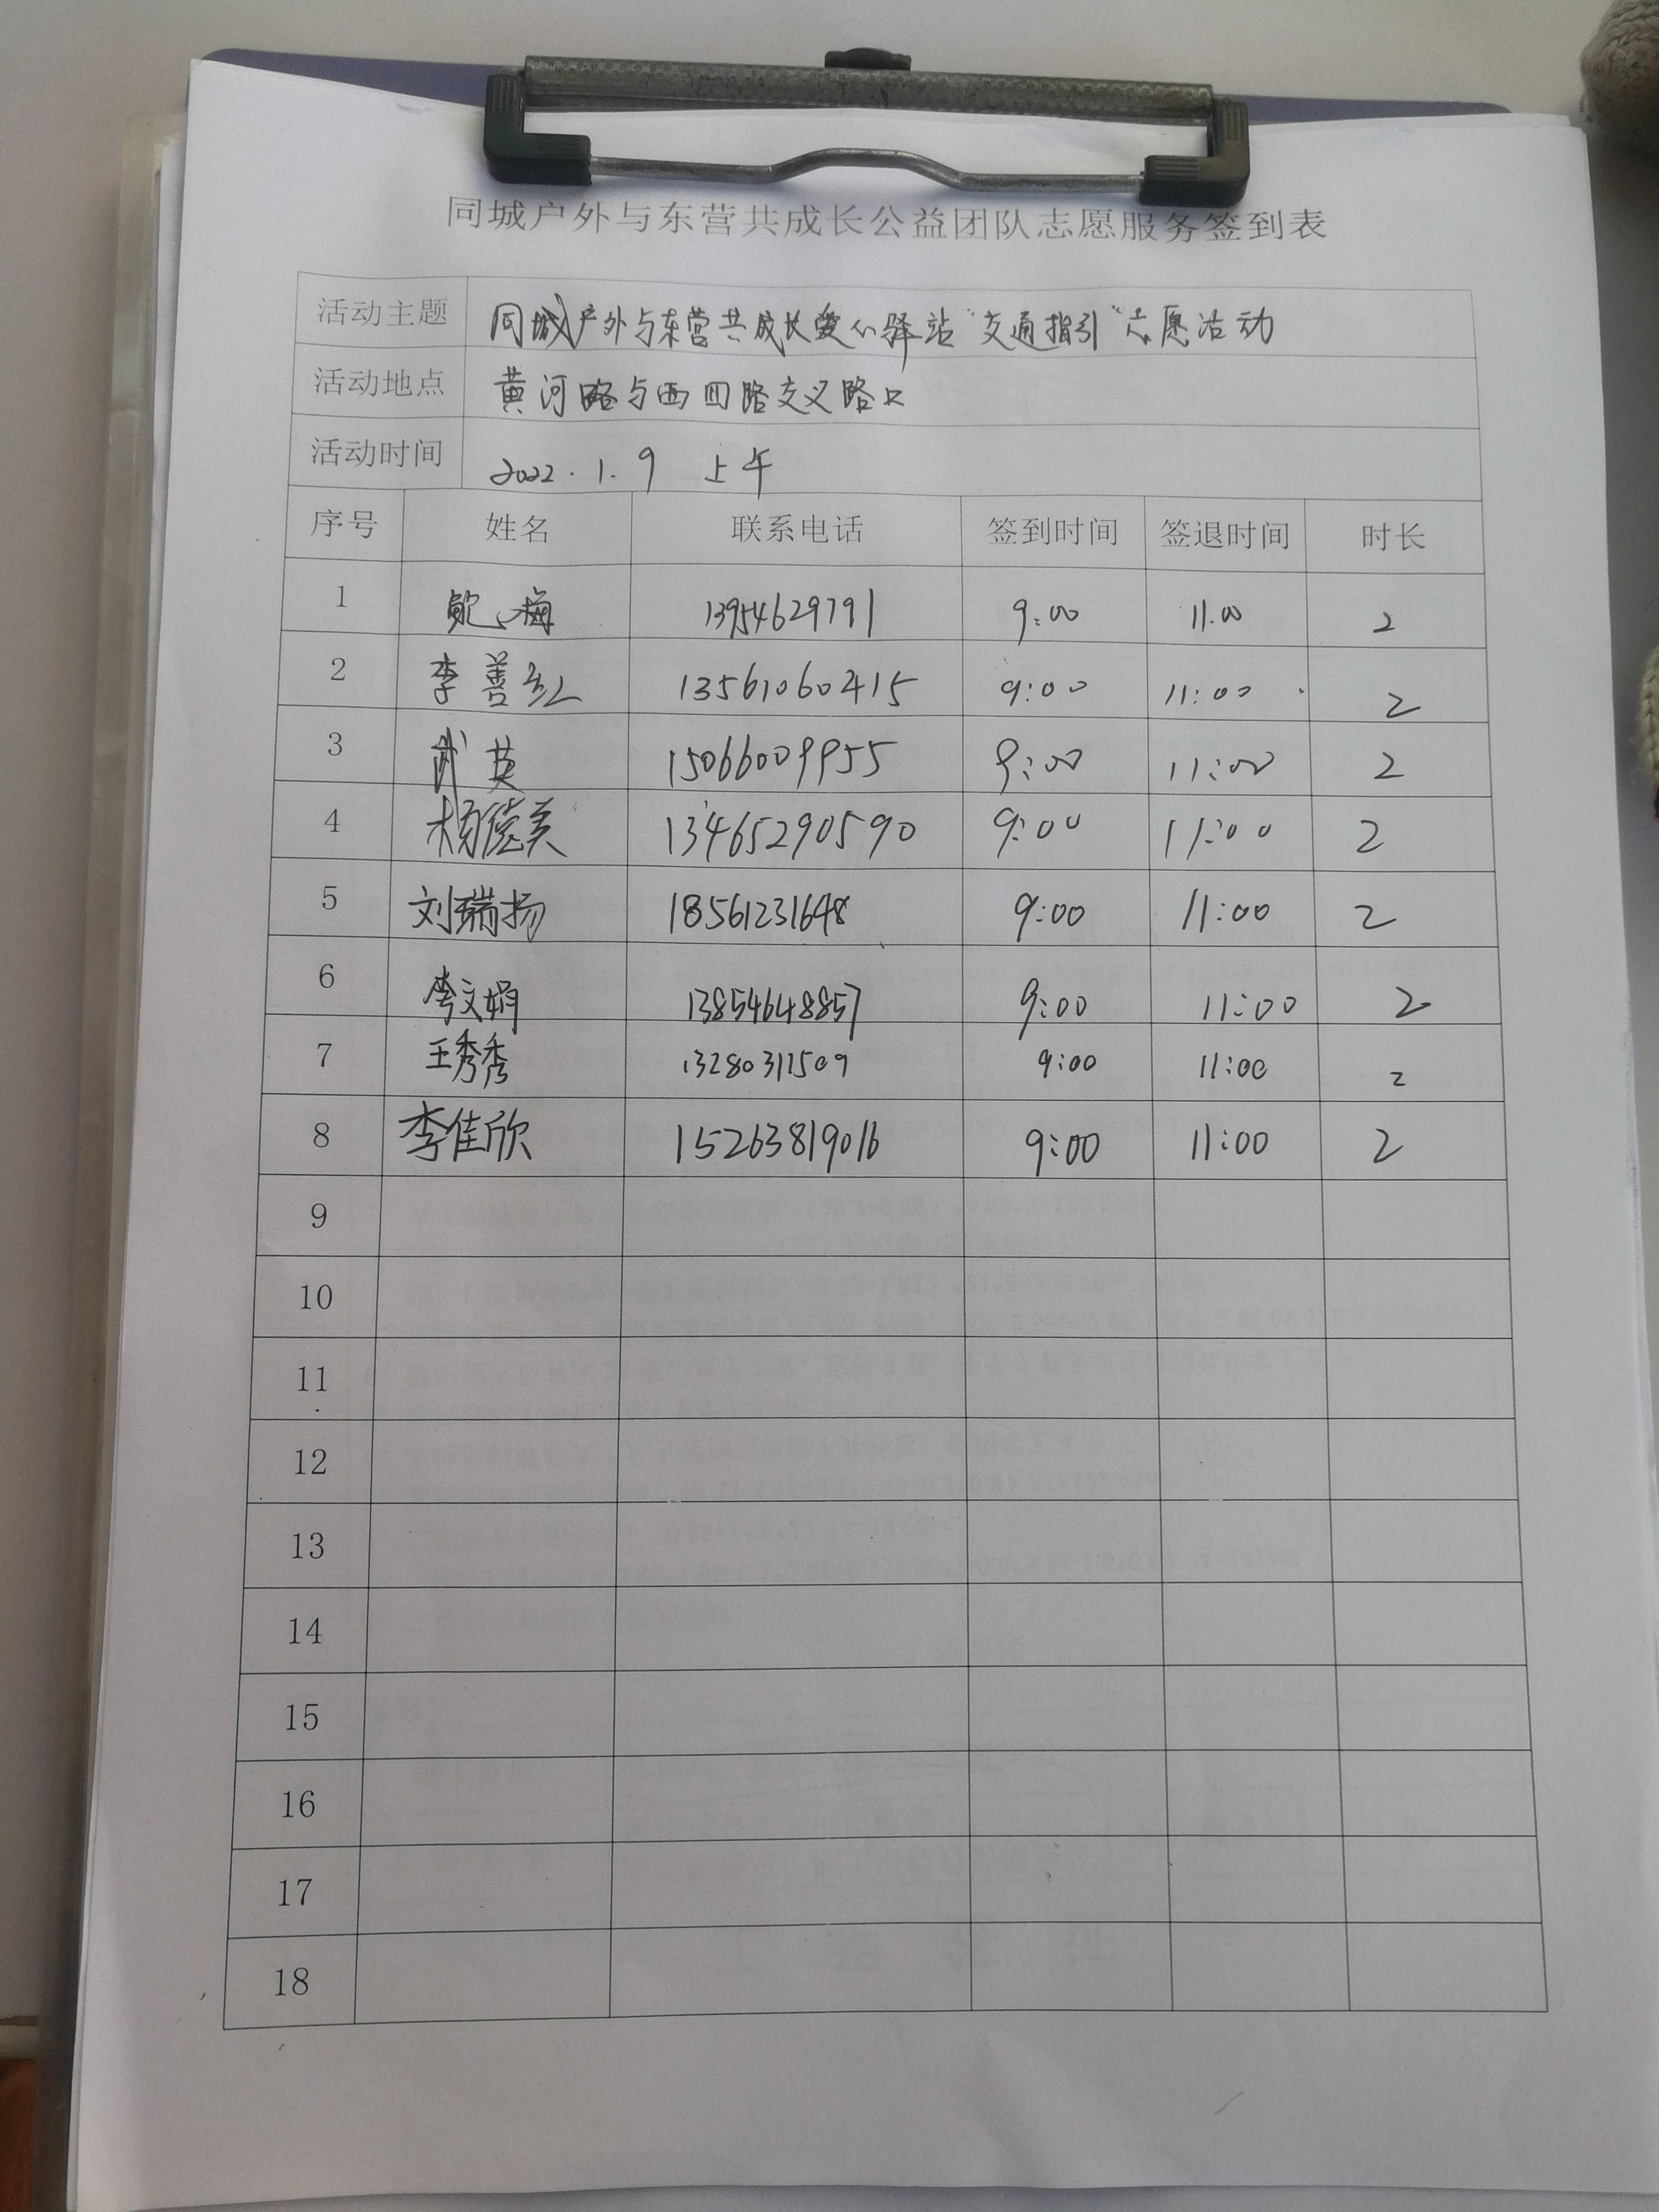 同城户外与东营共成长公益团队志愿服务签到表
活动主题 同城户外与东营共成长爱心驿站"交通指引"志愿活动
活动地点 黄河路与西四路交叉路口
活动时间 2022.1.9 上午
序号 姓名 联系电话 签到时间 签退时间 时长
1 梅 13954629791 9:00 11.00 2
2 李善红 13561060415 9:00 11:00 2
3 武英 15066009955 9:00 11:00 2
4 杨德美 13465290590 9:00 11:00 2
5 刘瑞扬 18561231648 9:00 11:00 2
6 李文娟 13854648857 9:00 11:00 2
7 王秀秀 13280311509 9:00 11:00 2
8 李佳欣 15263819016 9:00 11:00 2
9
10
11
12
13
14
15
16
17
18